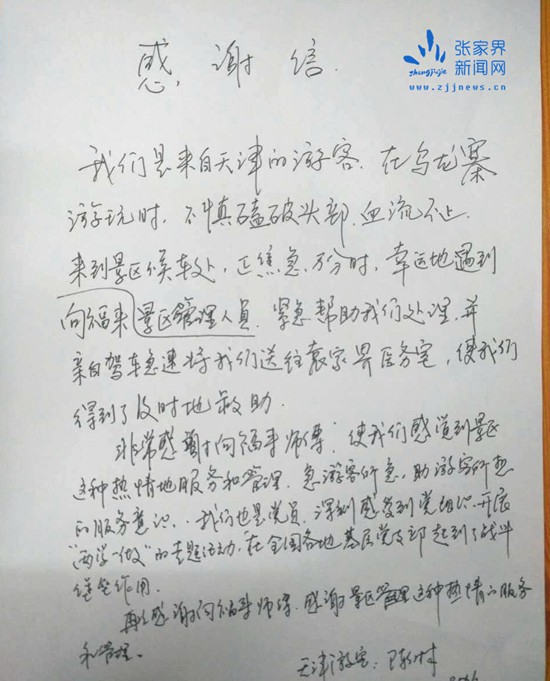 张家界
新闻网
zhangjiajie
www.zjjnews.cn
感谢信
我们是来自天津的游客.在乌龙寨
游玩时.不慎磕破头部.血流不止.
来到景区候车处,正焦急万分时,幸运地遇到
向福来景区管理人员.紧急帮助我们处理.并
亲自驾车急速将我们送往袁家界医务室,使我们
得到了及时地救助.
非常感谢向福来师傅,使我们感觉到景区
这种热情地服务和管理.急游客所急,助游客所想
的服务意识..我们也是党员.深刻感发到党组织开展
"两学一做"的专题活动,在全国各地基层党支部起到了战斗
堡垒作用.
再次感谢向福来师傅.感谢景区管理这种热情的服务
和管理.
天津游客: